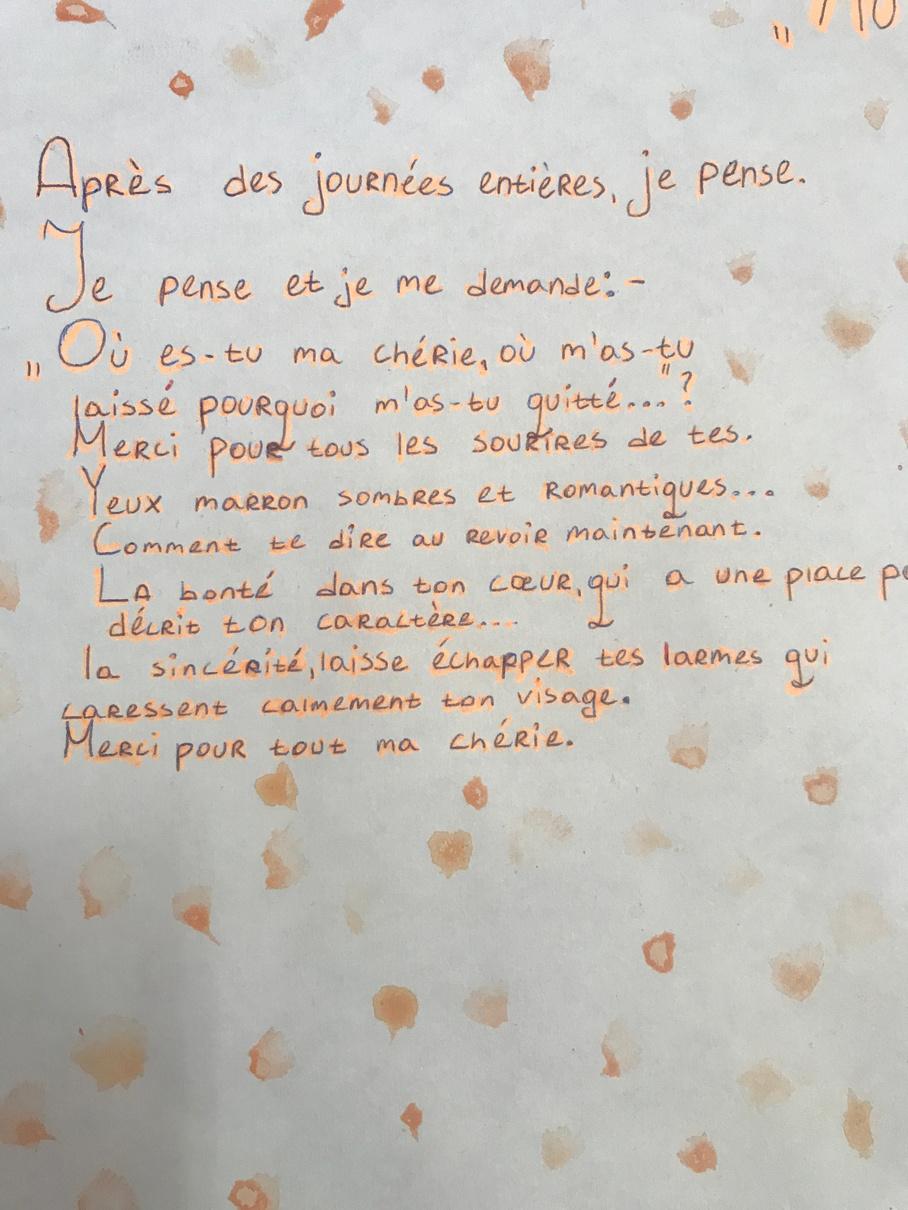 Après des journées entières, je pense.
Je pense et je me demande: -
„Où es-tu ma chérie, où m'as-tu
laissé pourquoi m'as-tu quitté..."?
Merci pour tous les sourires de tes.
Yeux marron sombres et romantiques...
Comment te dire au revoir maintenant.
La bonté dans ton cœur, qui a une place
décrit ton caractère...
la sincérité, laisse échapper tes larmes qui
caressent calmement ton visage.
Merci pour tout ma chérie.